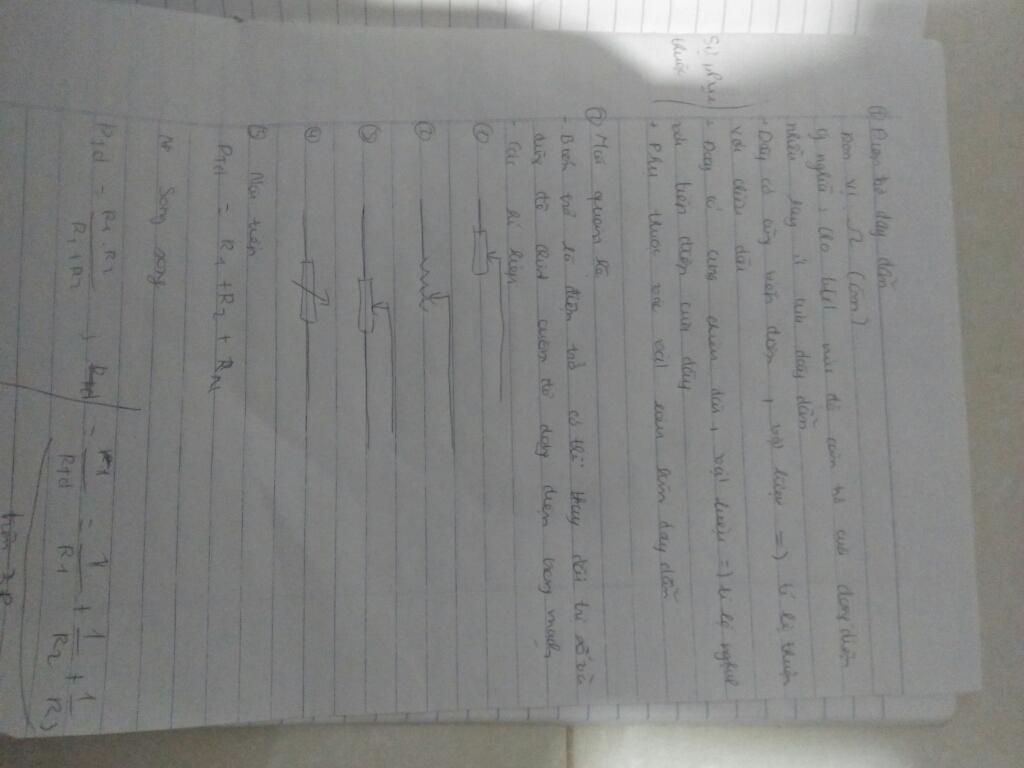 ① Điện trở dây dẫn
Đơn vị Ω (ôm)
ý nghĩa: cho biết mức độ cản trở của dòng điện
nhiều hay ít của dây dẫn
- Dây có cùng tiết diện, vật liệu => tỉ lệ thuận
với chiều dài
Sự phụ thuộc
+ Dây có cùng chiều dài, vật liệu => tỉ lệ nghịch
với tiết diện của dây
+ Phụ thuộc vào vật làm dây dẫn
② Mối quan hệ
- Biến trở là điện trở có thể thay đổi trị số và
dùng để chỉnh cường độ dòng điện trong mạch
- Các kí hiệu
①
②
③
④
⑤ Nối tiếp
Rtđ = R1 + R2 + RN
Song song
Rtđ = R1.R2 / R1+R2, 1 / Rtđ = 1 / R1 + 1 / R2 + 1 / R3